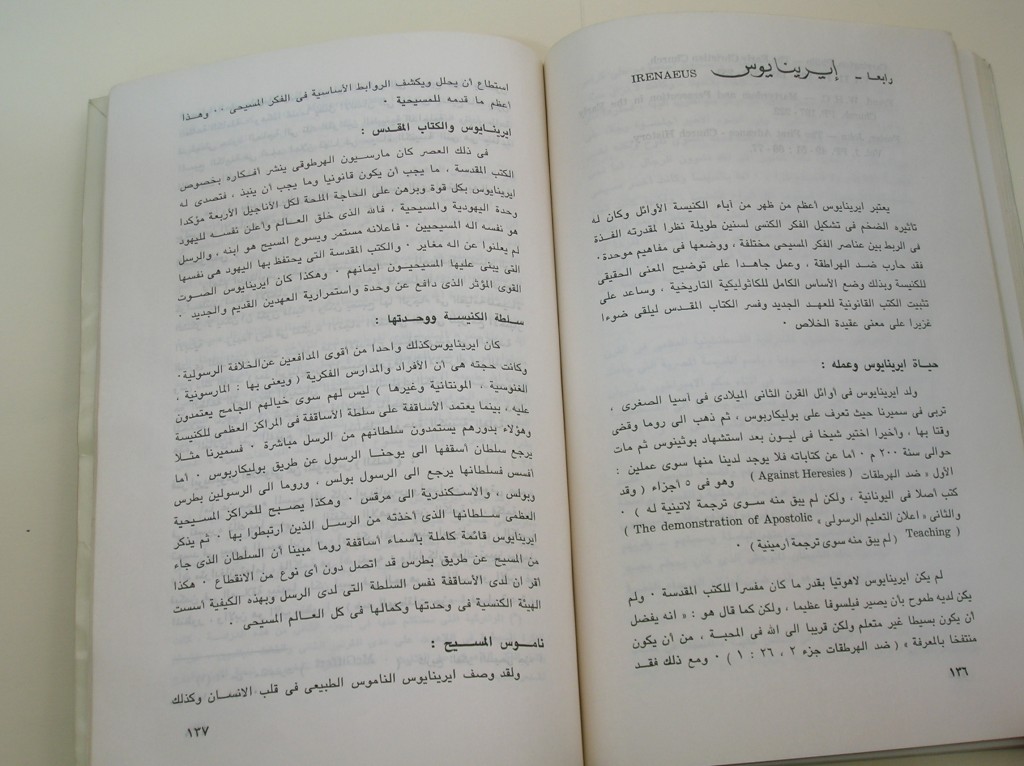 رابعا - إيرينايوس IRENAEUS
يعتبر ايرينايوس أعظم من ظهر من آباء الكنيسة الأوائل وكان له
تاثيره الضخم فى تشكيل الفكر الكنسى لسنين طويلة نظرا لمقدرته الفذة
فى الربط بين عناصر الفكر المسيحى مختلفة ، ووضعها فى مفاهيم موحدة .
فقد حارب ضد الهراطقة ، وعمل جاهدا على توضيح المعنى الحقيقى
للكنيسة وبذلك وضع الأساس الكامل للكاثوليكية التاريخية ، وساعد على
تثبيت الكتب القانونية للعهد الجديد وفسر الكتاب المقدس ليلقى ضوءا
غزيرا على معنى عقيدة الخلاص .
حياة ايرينايوس وعمله :
ولد ايرينايوس فى أوائل القرن الثانى الميلادى فى آسيا الصغرى ،
تربى فى سميرنا حيث تعرف على بوليكاربوس ، ثم ذهب الى روما وقضى
وقتا بها ، وأخيرا اختير شيخا فى ليون بعد استشهاد بوثينوس ثم مات
حوالى سنة ٢٠٠ م . أما عن كتاباته فلا يوجد لدينا منها سوى عملين :
الأول « ضد الهرطقات ( Against Heresies ) وهو فى ٥ أجزاء ( وقد
كتب أصلا فى اليونانية ، ولكن لم يبق منه سوى ترجمة لاتينية له ) .
والثانى « اعلان التعليم الرسولى » ( The demonstration of Apostolic
Teaching ) ( لم يبق منه سوى ترجمة أرمينية ) .
لم يكن ايرينايوس لاهوتيا بقدر ما كان مفسرا للكتب المقدسة . ولم
يكن لديه طموح بأن يصير فيلسوفا عظيما ، ولكن كما قال هو : « انه يفضل
أن يكون بسيطا غير متعلم ولكن قريبا الى الله فى المحبة ، من أن يكون
منتفخا بالمعرفة » ( ضد الهرطقات جزء ٢ ، ٢٦ : ١ ) . ومع ذلك فقد
١٣٦
استطاع أن يحلل ويكشف الروابط الأساسية فى الفكر المسيحى . . وهذا
أعظم ما قدمه للمسيحية .
ايرينايوس والكتاب المقدس :
فى ذلك العصر كان مارسيون الهرطوقى ينشر أفكاره بخصوص
الكتب المقدسة ، ما يجب أن يكون قانونيا وما يجب أن ينبذ ، فتصدى له
ايرينايوس بكل قوة وبرهن على الحاجة الملحة لكل الأناجيل الأربعة مؤكدا
وحدة اليهودية والمسيحية ، فالله الذى خلق العالم وأعلن نفسه لليهود
هو نفسه اله المسيحيين . فاعلانه مستمر ويسوع المسيح هو ابنه ، والرسل
لم يعلنوا عن اله مغاير . والكتب المقدسة التى يحتفظ بها اليهود هى نفسها
التى يبنى عليها المسيحيون ايمانهم . وهكذا كان ايرينايوس الصوت
القوى المؤثر الذى دافع عن وحدة واستمرارية العهدين القديم والجديد .
سلطة الكنيسة ووحدتها :
كان ايرينايوس كذلك واحدا من أقوى المدافعين عن الخلافة الرسولية .
وكانت حجته هى أن الأفراد والمدارس الفكرية ( ويعنى بها : المارسونية ،
الغنوسية ، المونتانية وغيرها ) ليس لهم سوى خيالهم الجامح يعتمدون
عليه ، بينما يعتمد الأساقفة على سلطة الأساقفة فى المراكز العظمى للكنيسة
وهؤلاء بدورهم يستمدون سلطانهم من الرسل مباشرة . فسميرنا مثلا
يرجع سلطان أسقفها الى يوحنا الرسول عن طريق بوليكاربوس . أما
أفسس فسلطانها يرجع الى الرسول بولس ، وروما الى الرسولين بطرس
وبولس ، والاسكندرية الى مرقس . وهكذا يصبح للمراكز المسيحية
العظمى سلطانها الذى أخذته من الرسل الذين ارتبطوا بها . ثم يذكر
ايرينايوس قائمة كاملة بأسماء أساقفة روما مبينا أن السلطان الذى جاء
من المسيح عن طريق بطرس قد اتصل دون أى نوع من الانقطاع . هكذا
أقر أن لدى الأساقفة نفس السلطة التى لدى الرسل وبهذه الكيفية أسست
الهيئة الكنسية فى وحدتها وكمالها فى كل العالم المسيحى .
ناموس المسيح :
ولقد وصف ايرينايوس الناموس الطبيعى فى قلب الانسان وكذلك
١٣٧